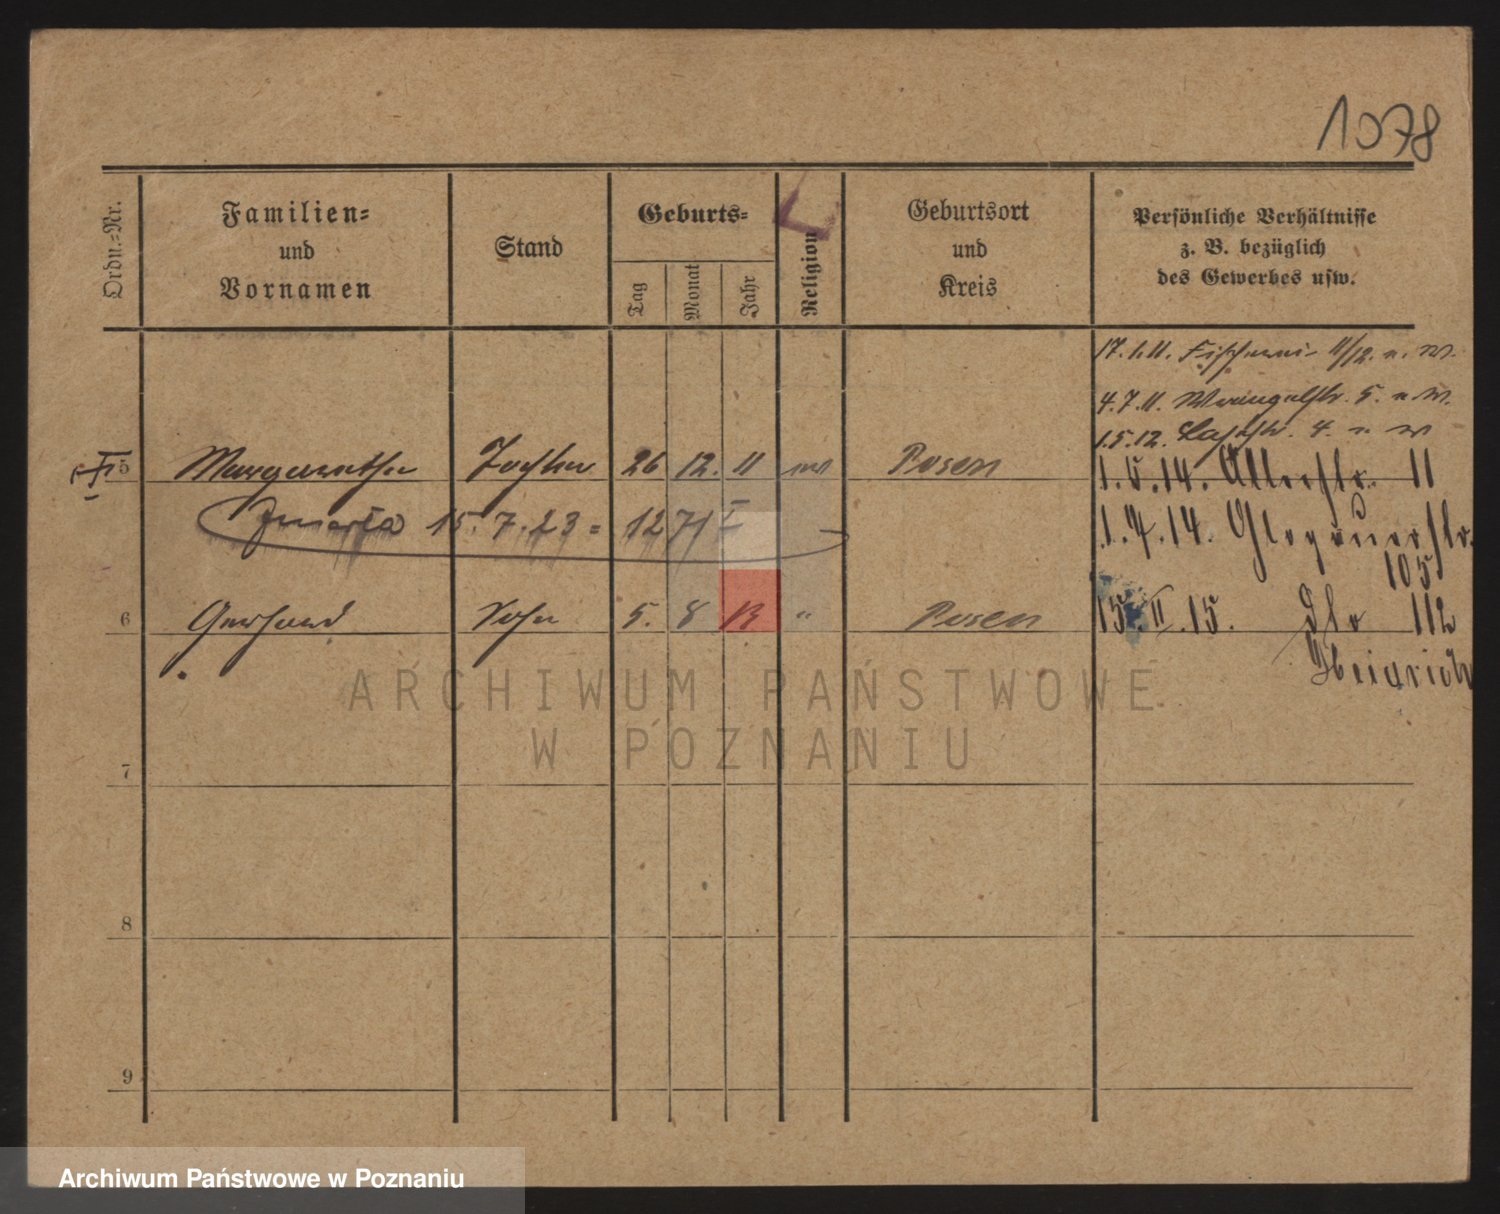 1078
Ordn.=Nr.
Familien=
und
Vornamen
Stand
Geburts=
Tag
Monat
Jahr
Religion
Geburtsort
und
Kreis
Persönliche Verhältnisse
z. B. bezüglich
des Gewerbes usw.
17.1.11. Fischerei 11/12. n. W.
4.7.11. 5. n. W.
1.5.12. 4. n. W
5 Margarethe Tochter 26 12. 11 Posen
1.5.14. 11
zmarła 15.7.23 = 1271 I
1.4.14. Glogauerstr.
105
6 Gerhard Sohn 5. 8 13 " Posen
15.II.15. Dto 112
Heinrich
ARCHIWUM PAŃSTWOWE
W POZNANIU
7
8
9
Archiwum Państwowe w Poznaniu